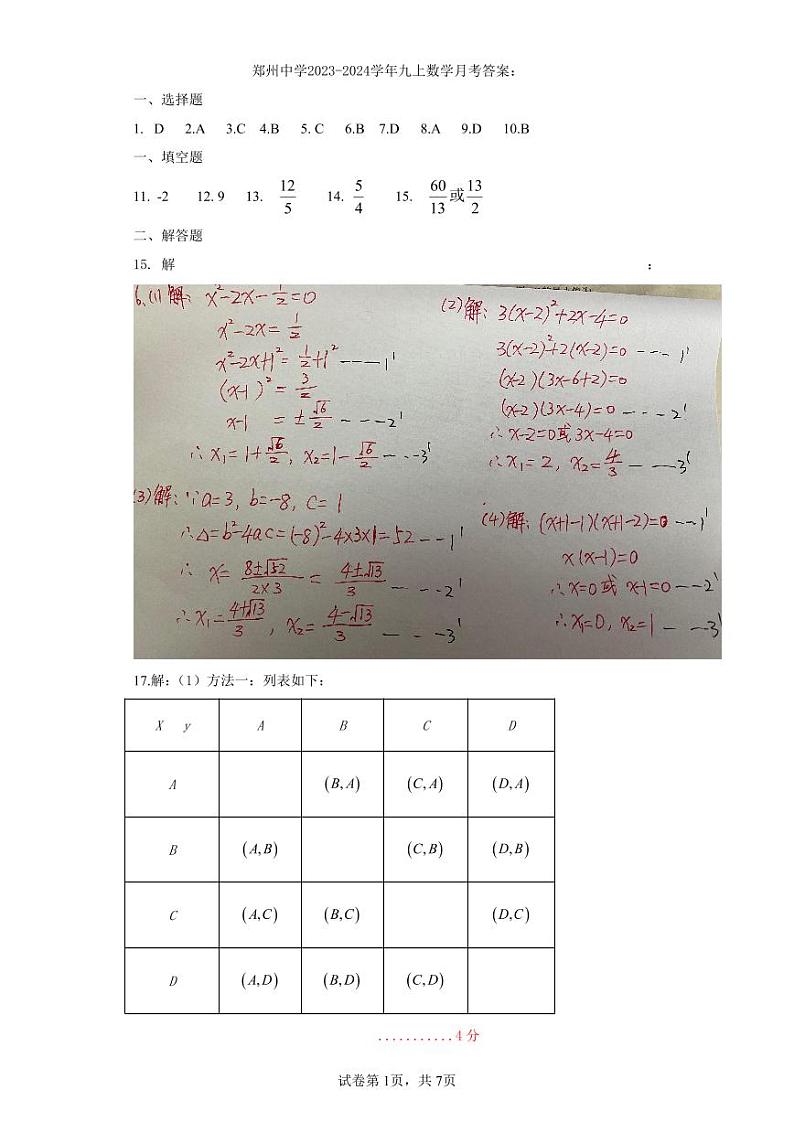 郑州中学2023-2024学年九上数学月考答案：
一、选择题
1. D 2.A 3.C 4.B 5. C 6.B 7.D 8.A 9.D 10.B
一、填空题
11. -2 12. 9 13. 12/5 14. 5/4 15. 60/13或13/2
二、解答题
15. 解 ：
6、(1)解：x²-2x-1/2=0
x²-2x=1/2
x²-2x+1²=1/2+1² ----1'
(x-1)²=3/2
x-1 =±√6/2 ----2'
∴x₁=1+√6/2, x₂=1-√6/2 ----3'
(2)解：3(x-2)²+2x-4=0
3(x-2)²+2(x-2)=0 ----1'
(x-2)(3x-6+2)=0
(x-2)(3x-4)=0 ----2'
∴x-2=0或3x-4=0
∴x₁=2, x₂=4/3 ---3'
(3)解：∵a=3, b=-8, c=1
∴△=b²-4ac=(-8)²-4×3×1=52 ---1'
∴ x=8±√52/2×3 = 4±√13/3 ----2'
∴x₁=4+√13/3, x₂=4-√13/3 ----3'
(4)解：(x+1-1)(x+1-2)=0 ---1'
x(x-1)=0
∴x=0或 x-1=0 ---2'
∴x₁=0, x₂=1 ---3'
17.解：（1）方法一：列表如下：
X y A B C D
A (B,A) (C,A) (D,A)
B (A,B) (C,B) (D,B)
C (A,C) (B,C) (D,C)
D (A,D) (B,D) (C,D)
...........4 分
试卷第 1页，共 7页